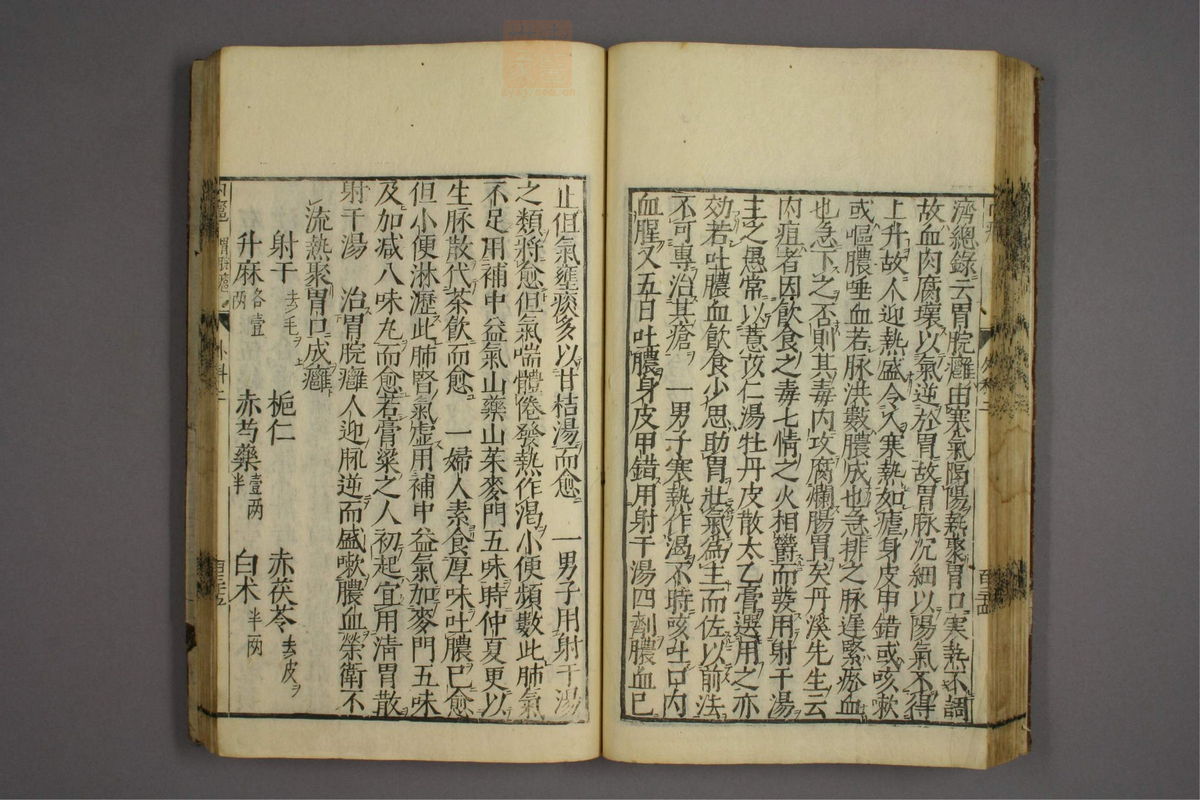 濟總錄云胃脘癰由寒氣隔陽熱聚胃口寒熱不調
故血肉腐壞以氣逆於胃故胃脉沉細以陽氣不得
上升故人迎熱盛令人寒熱如瘧身皮甲錯或咳嗽
或嘔膿唾血若脉洪數膿成也急排之脉遲緊瘀血
也急下之否則其毒内攻腐爛腸胃矣丹溪先生云
内疽者因飲食之毒七情之火相欝而發用射干湯
主之愚常以薏苡仁湯牡丹皮散太乙膏選用之亦
効若吐膿血飲食少思助胃壯氣爲主而佐以前法
不可專治其瘡　一男子寒熱作渴不時咳吐口内
血腥又五日吐膿身皮甲錯用射干湯四劑膿血已
止但氣壅痰多以甘桔湯而愈　一男子用射干湯
之類將愈但氣喘體倦發熱作渴小便頻數此肺氣
不足用補中益氣山藥山茱麥門五味時仲夏更以
生脉散代茶飲而愈　一婦人素食厚味吐膿已愈
但小便淋瀝此肺腎氣虚用補中益氣加麥門五味
及加减八味丸而愈若膏粱之人初起宜用清胃散
射干湯　治胃脘癰人迎脉逆而盛嗽膿血榮衛不
流熱聚胃口成癰
射干去毛　梔仁　赤茯苓去皮
升麻各壹兩　赤芍藥壹兩半　白术半兩
外科二